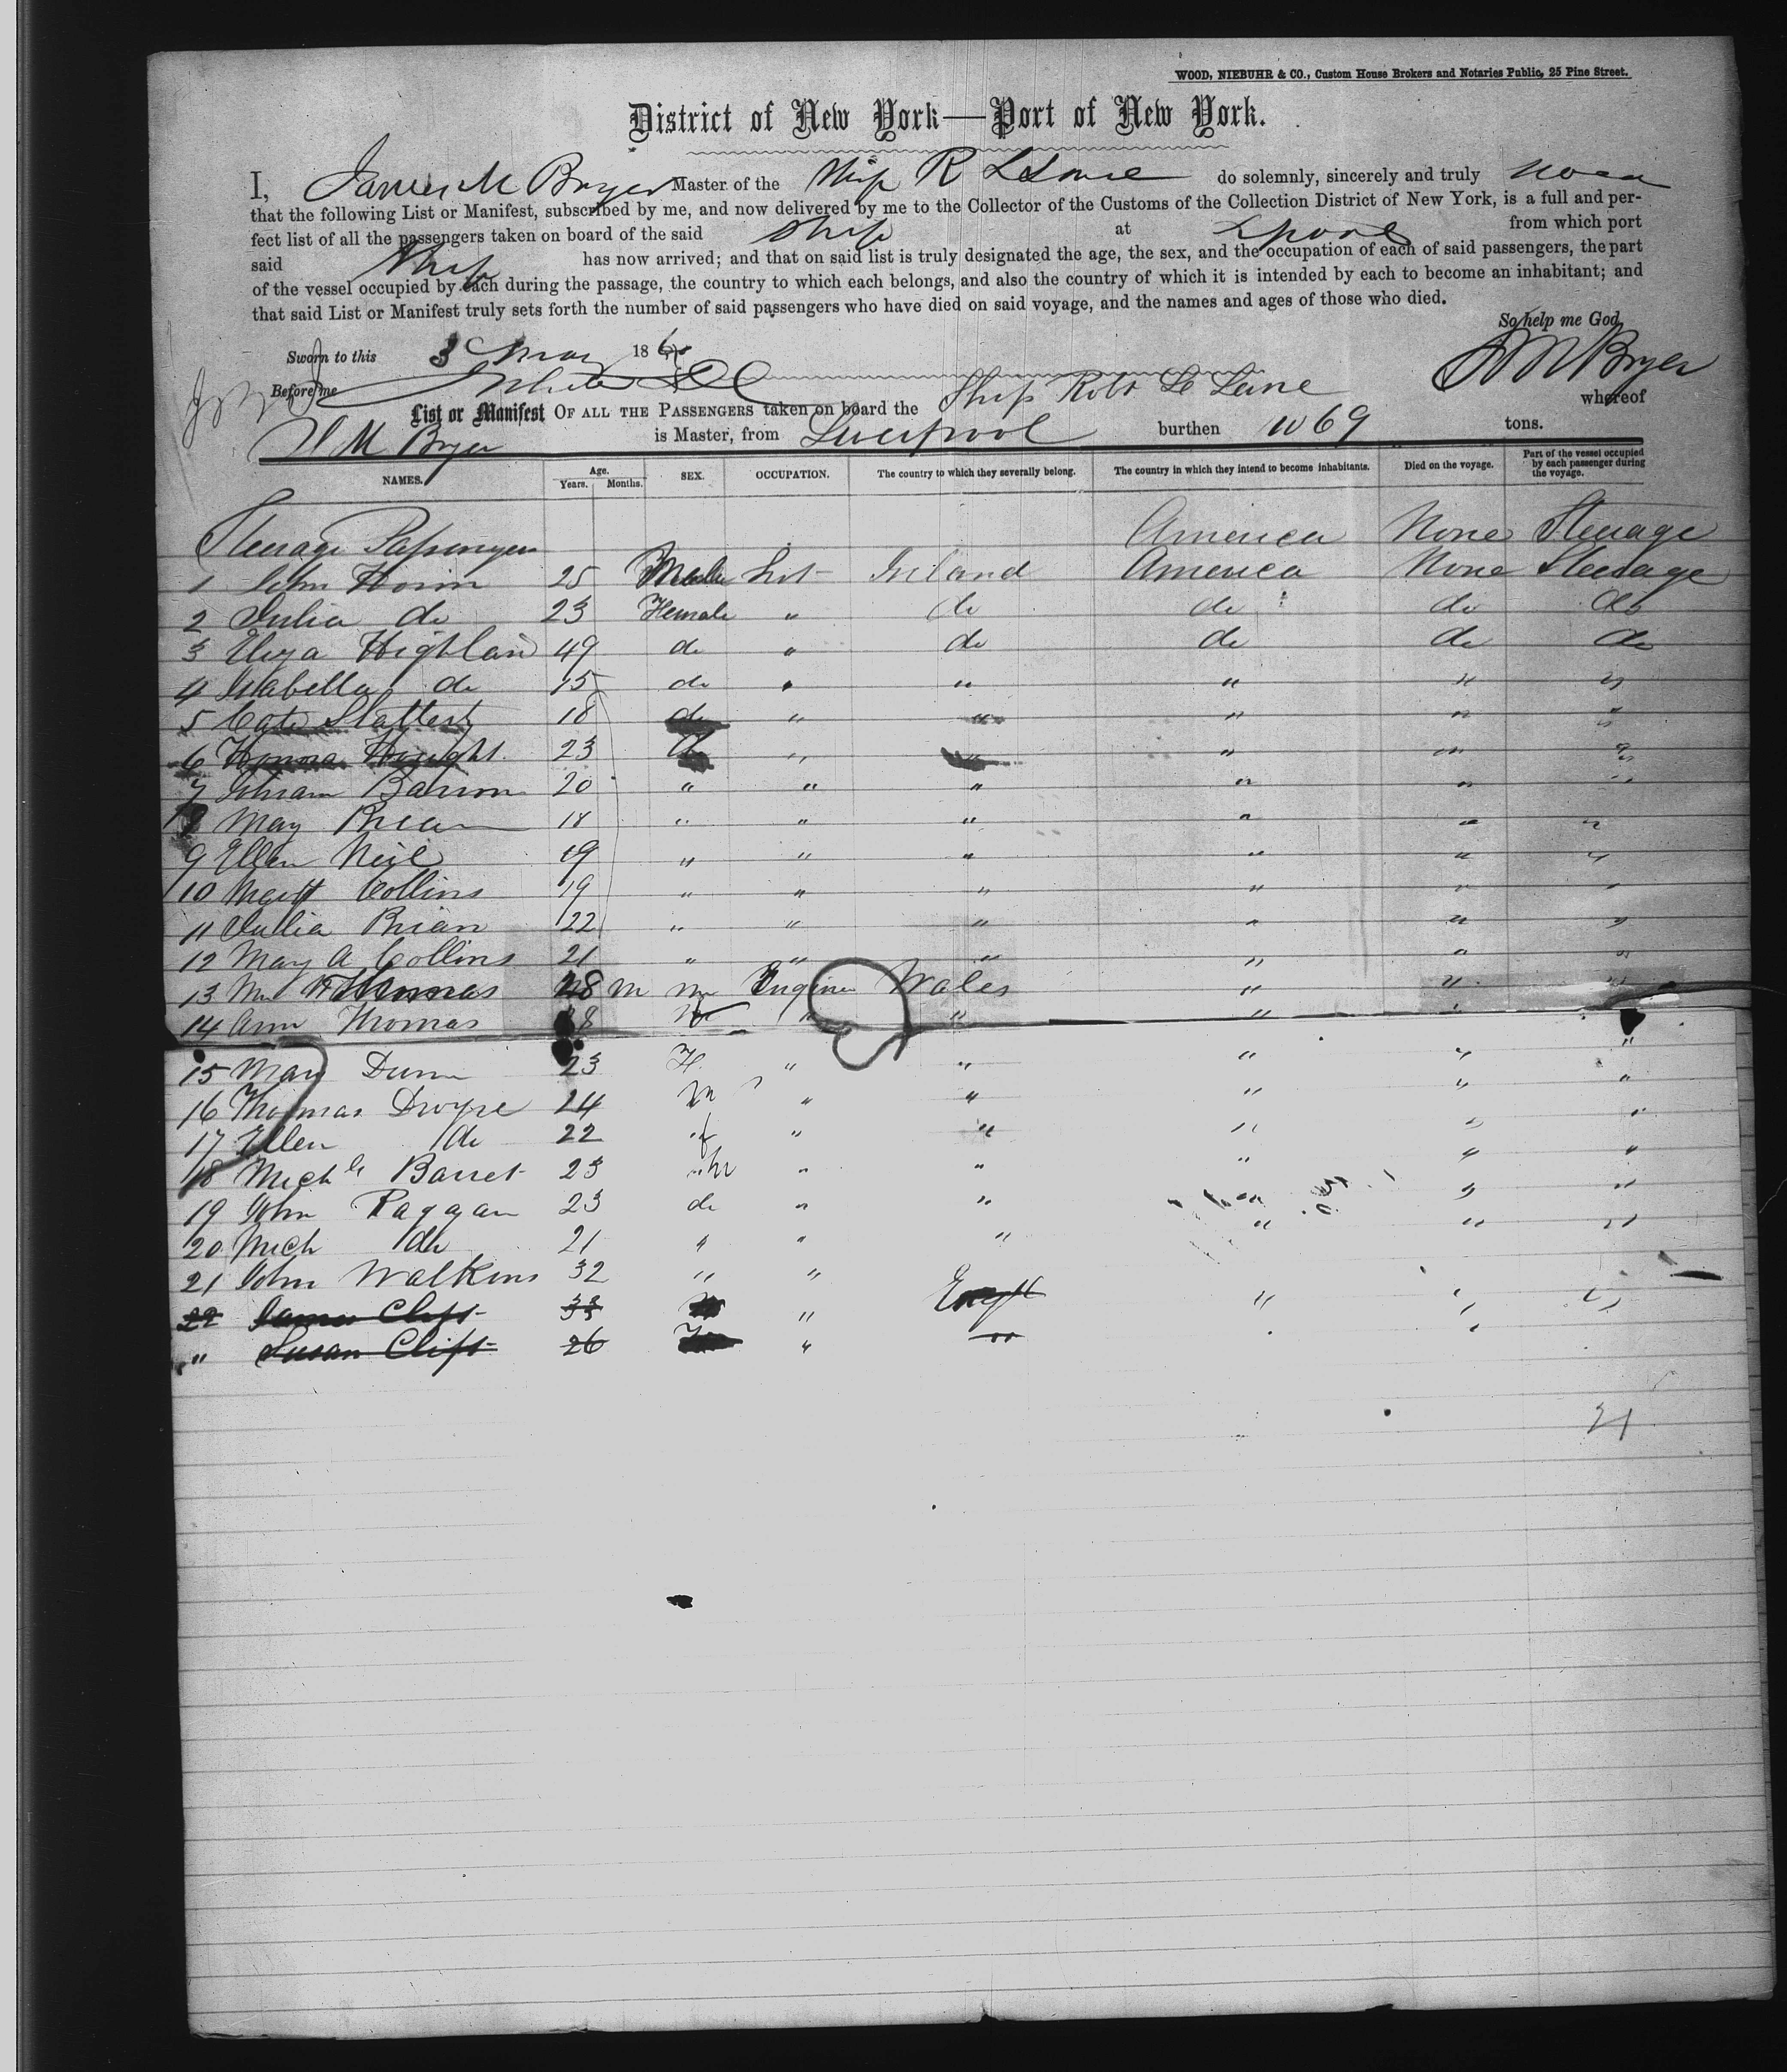 WOOD, NIEBUHR & CO., Custom House Brokers and Notaries Public, 25 Pine Street.
District of New York—Port of New York.
I, James M Bryer Master of the Ship R L Lane do solemnly, sincerely and truly
that the following List or Manifest, subscribed by me, and now delivered by me to the Collector of the Customs of the Collection District of New York, is a full and per-
fect list of all the passengers taken on board of the said Ship at Lpool from which port
said Ship has now arrived; and that on said list is truly designated the age, the sex, and the occupation of each of said passengers, the part
of the vessel occupied by each during the passage, the country to which each belongs, and also the country of which it is intended by each to become an inhabitant; and
that said List or Manifest truly sets forth the number of said passengers who have died on said voyage, and the names and ages of those who died.
So help me God
Sworn to this 3 May 186
Before me Bryer
List or Manifest OF ALL THE PASSENGERS taken on board the Ship Robt L Lane whereof
M Bryer is Master, from Liverpool burthen 1069 tons.
NAMES. Age. Years. Months. SEX. OCCUPATION. The country to which they severally belong. The country in which they intend to become inhabitants. Died on the voyage. Part of the vessel occupied by each passenger during the voyage.
Steerage Passengers America None Steerage
1 John 25 Male Ireland America None Steerage
2 Julia do 23 Female " do do do do
3 Eliza Highland 49 do " do do do do
4 Isabella do 15 do " " " " "
5 Cate Slattery 18 do " " " " "
6 Honora 23 do " " " " "
7 Barron 20 " " " " " "
8 Mary 18 " " " " " "
9 Ellen Neil 19 " " " " " "
10 Collins 19 " " " " " "
11 Julia Brian 22 " " " " " "
12 Mary A Collins 21 " " " " " "
13 Thomas 28 m m Engineer Wales " " "
14 Ann Thomas 28 f " " " " "
15 Mary Dunn 23 F. " " " " "
16 Thomas Dwyre 24 m " " " " "
17 Ellen do 22 f " " " " "
18 Michl Barret 23 m " " " " "
19 John Raggan 23 do " " " " "
20 Mich do 21 " " " " " "
21 John Walkins 32 " "
22 James Clift 33 " Engd " " "
" Susan Clift 26 " " " "
21